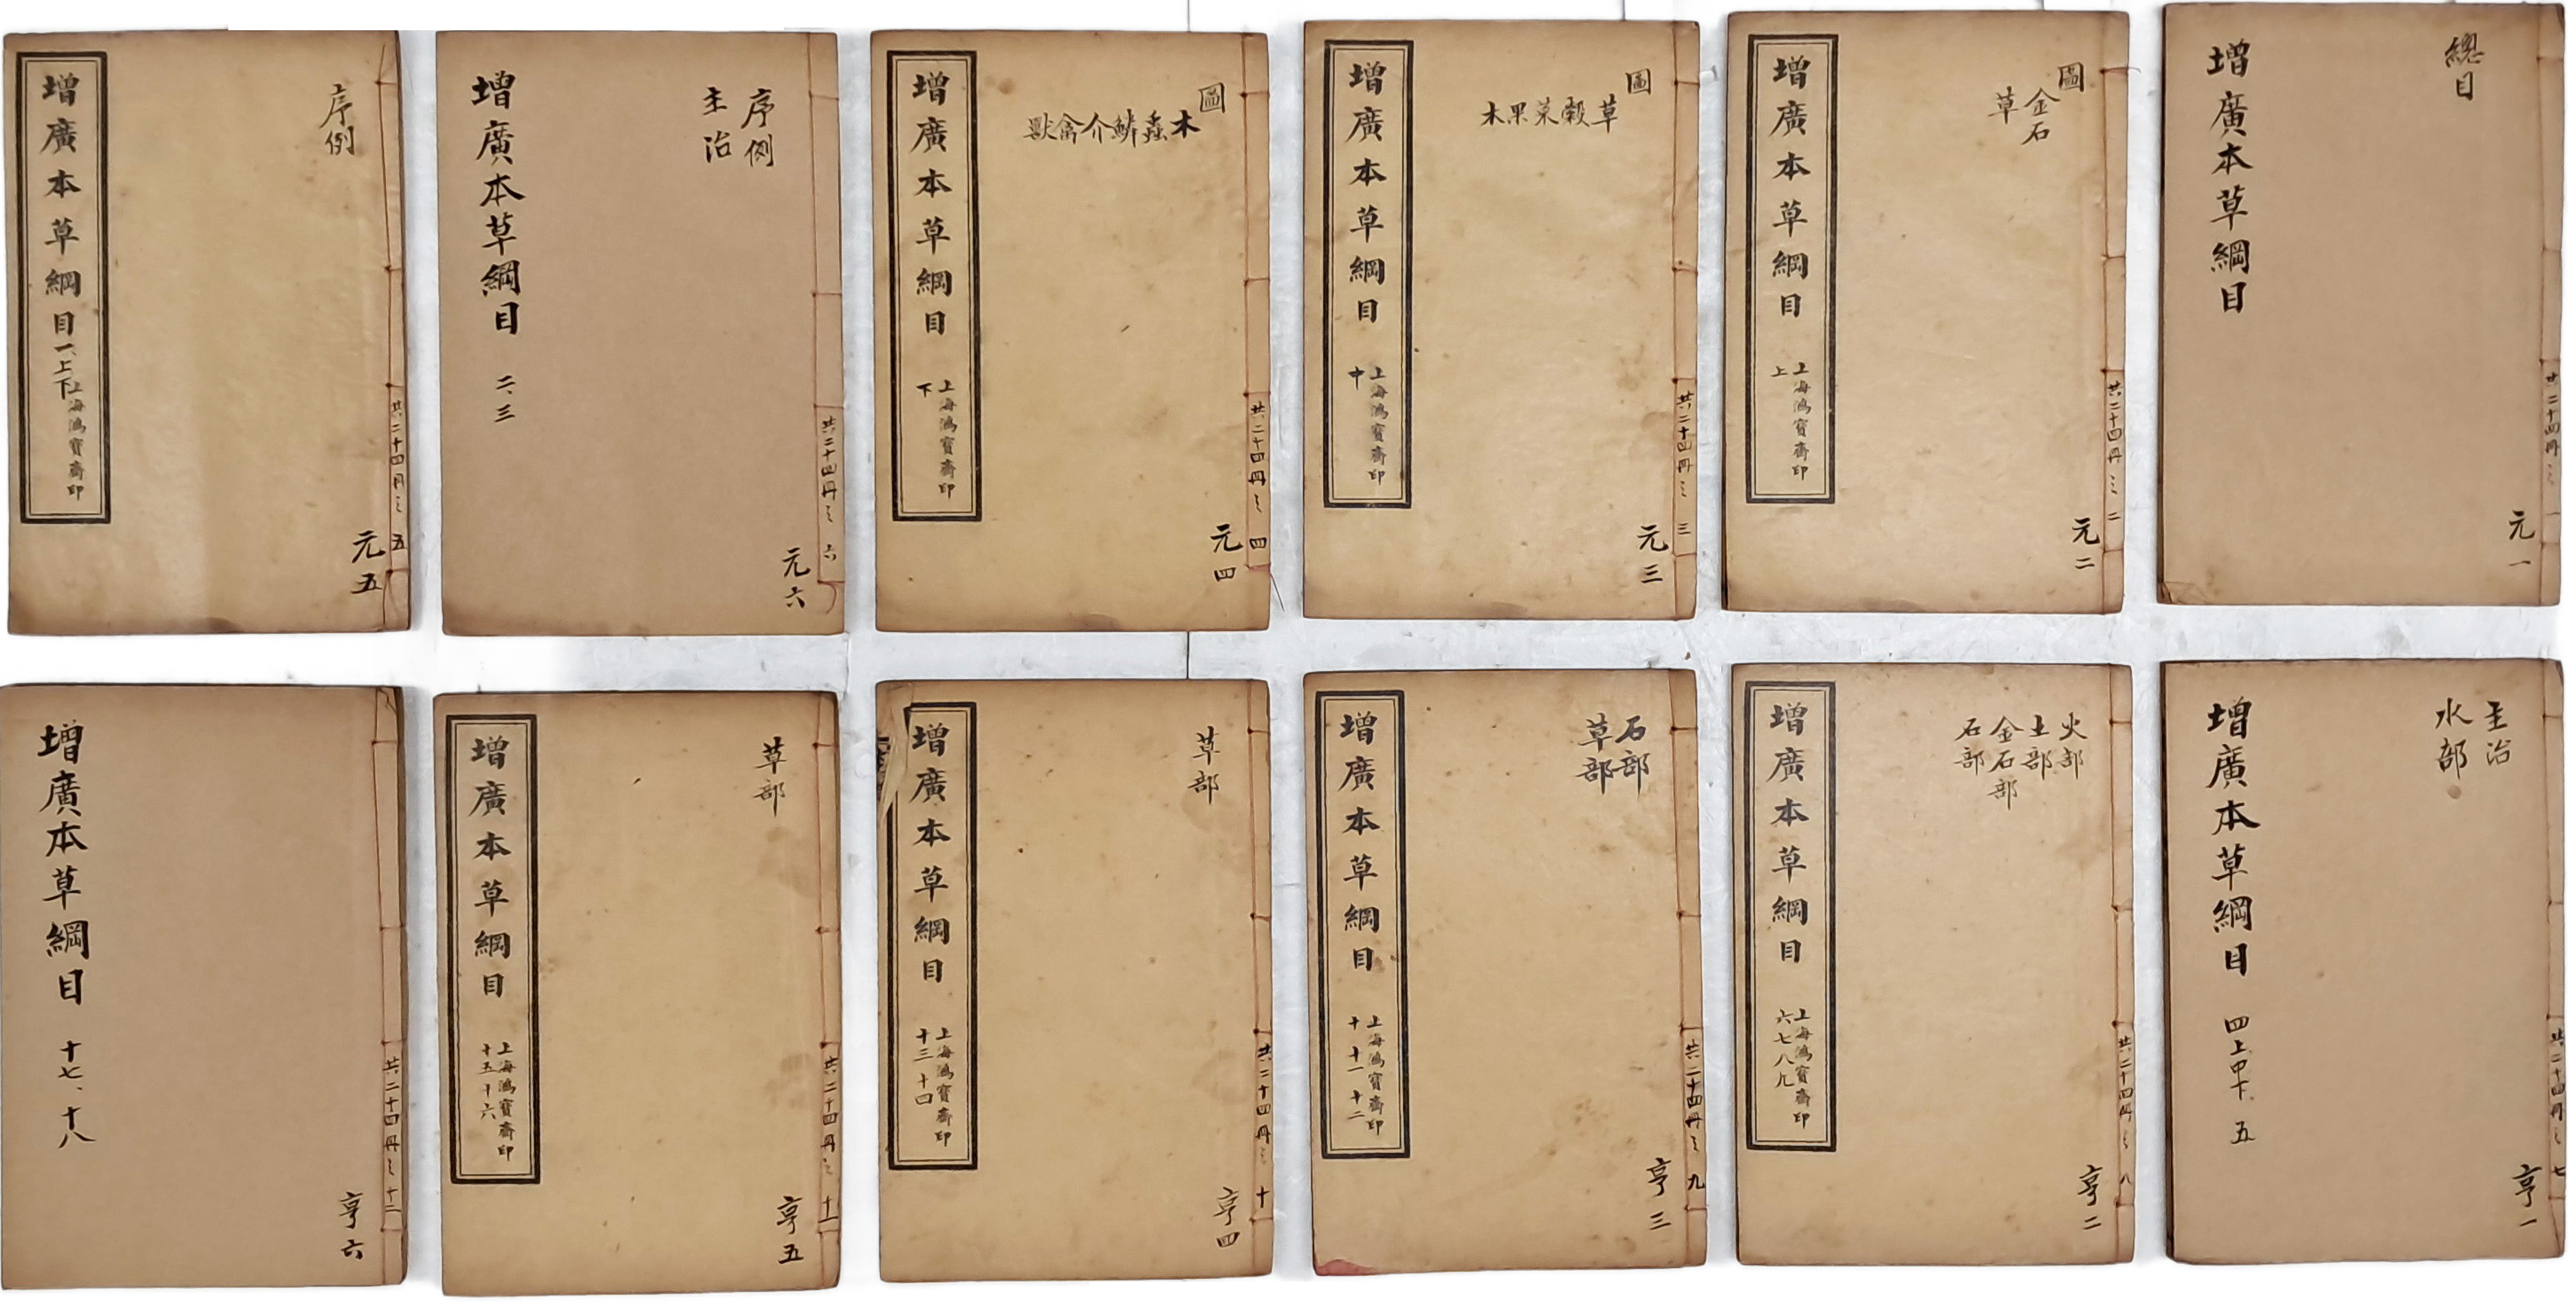 總目
增廣本草綱目
元一
共二十四冊之一
圖
金石
草
增廣本草綱目
上海鴻寶齋印
上
元二
共二十四冊之二
圖
草穀菜果木
增廣本草綱目
上海鴻寶齋印
中
元三
共二十四冊之三
圖
木蟲鱗介禽獸
增廣本草綱目
上海鴻寶齋印
下
元四
共二十四冊之四
序例
主治
增廣本草綱目 二、三
元六
共二十四冊之六
序例
增廣本草綱目一上下
上海鴻寶齋印
元五
共二十四冊之五
主治
水部
增廣本草綱目 四上中下 五
亨一
共二十四冊之七
火部
土部
金石部
石部
增廣本草綱目
上海鴻寶齋印
六七八九
亨二
共二十四冊之八
石部
草部
增廣本草綱目
上海鴻寶齋印
十 十一 十二
亨三
共二十四冊之九
草部
增廣本草綱目
上海鴻寶齋印
十三 十四
亨四
共二十四冊之十
草部
增廣本草綱目
上海鴻寶齋印
十五 十六
亨五
共二十四冊之十一
增廣本草綱目 十七、十八
亨六
共二十四冊之十二